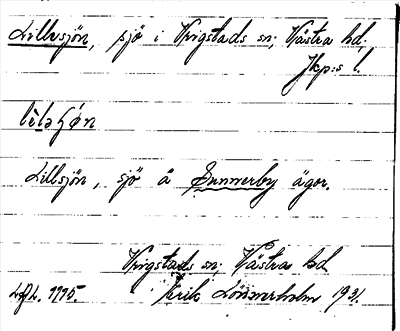 Lillsjön, sjö i Vrigstads sn; Västra hd,
Jkp:s l.
Lillsjön, sjö å Sunnerby ägor.
Vrigstads sn; Västra hd
Lönnerholm 1931.